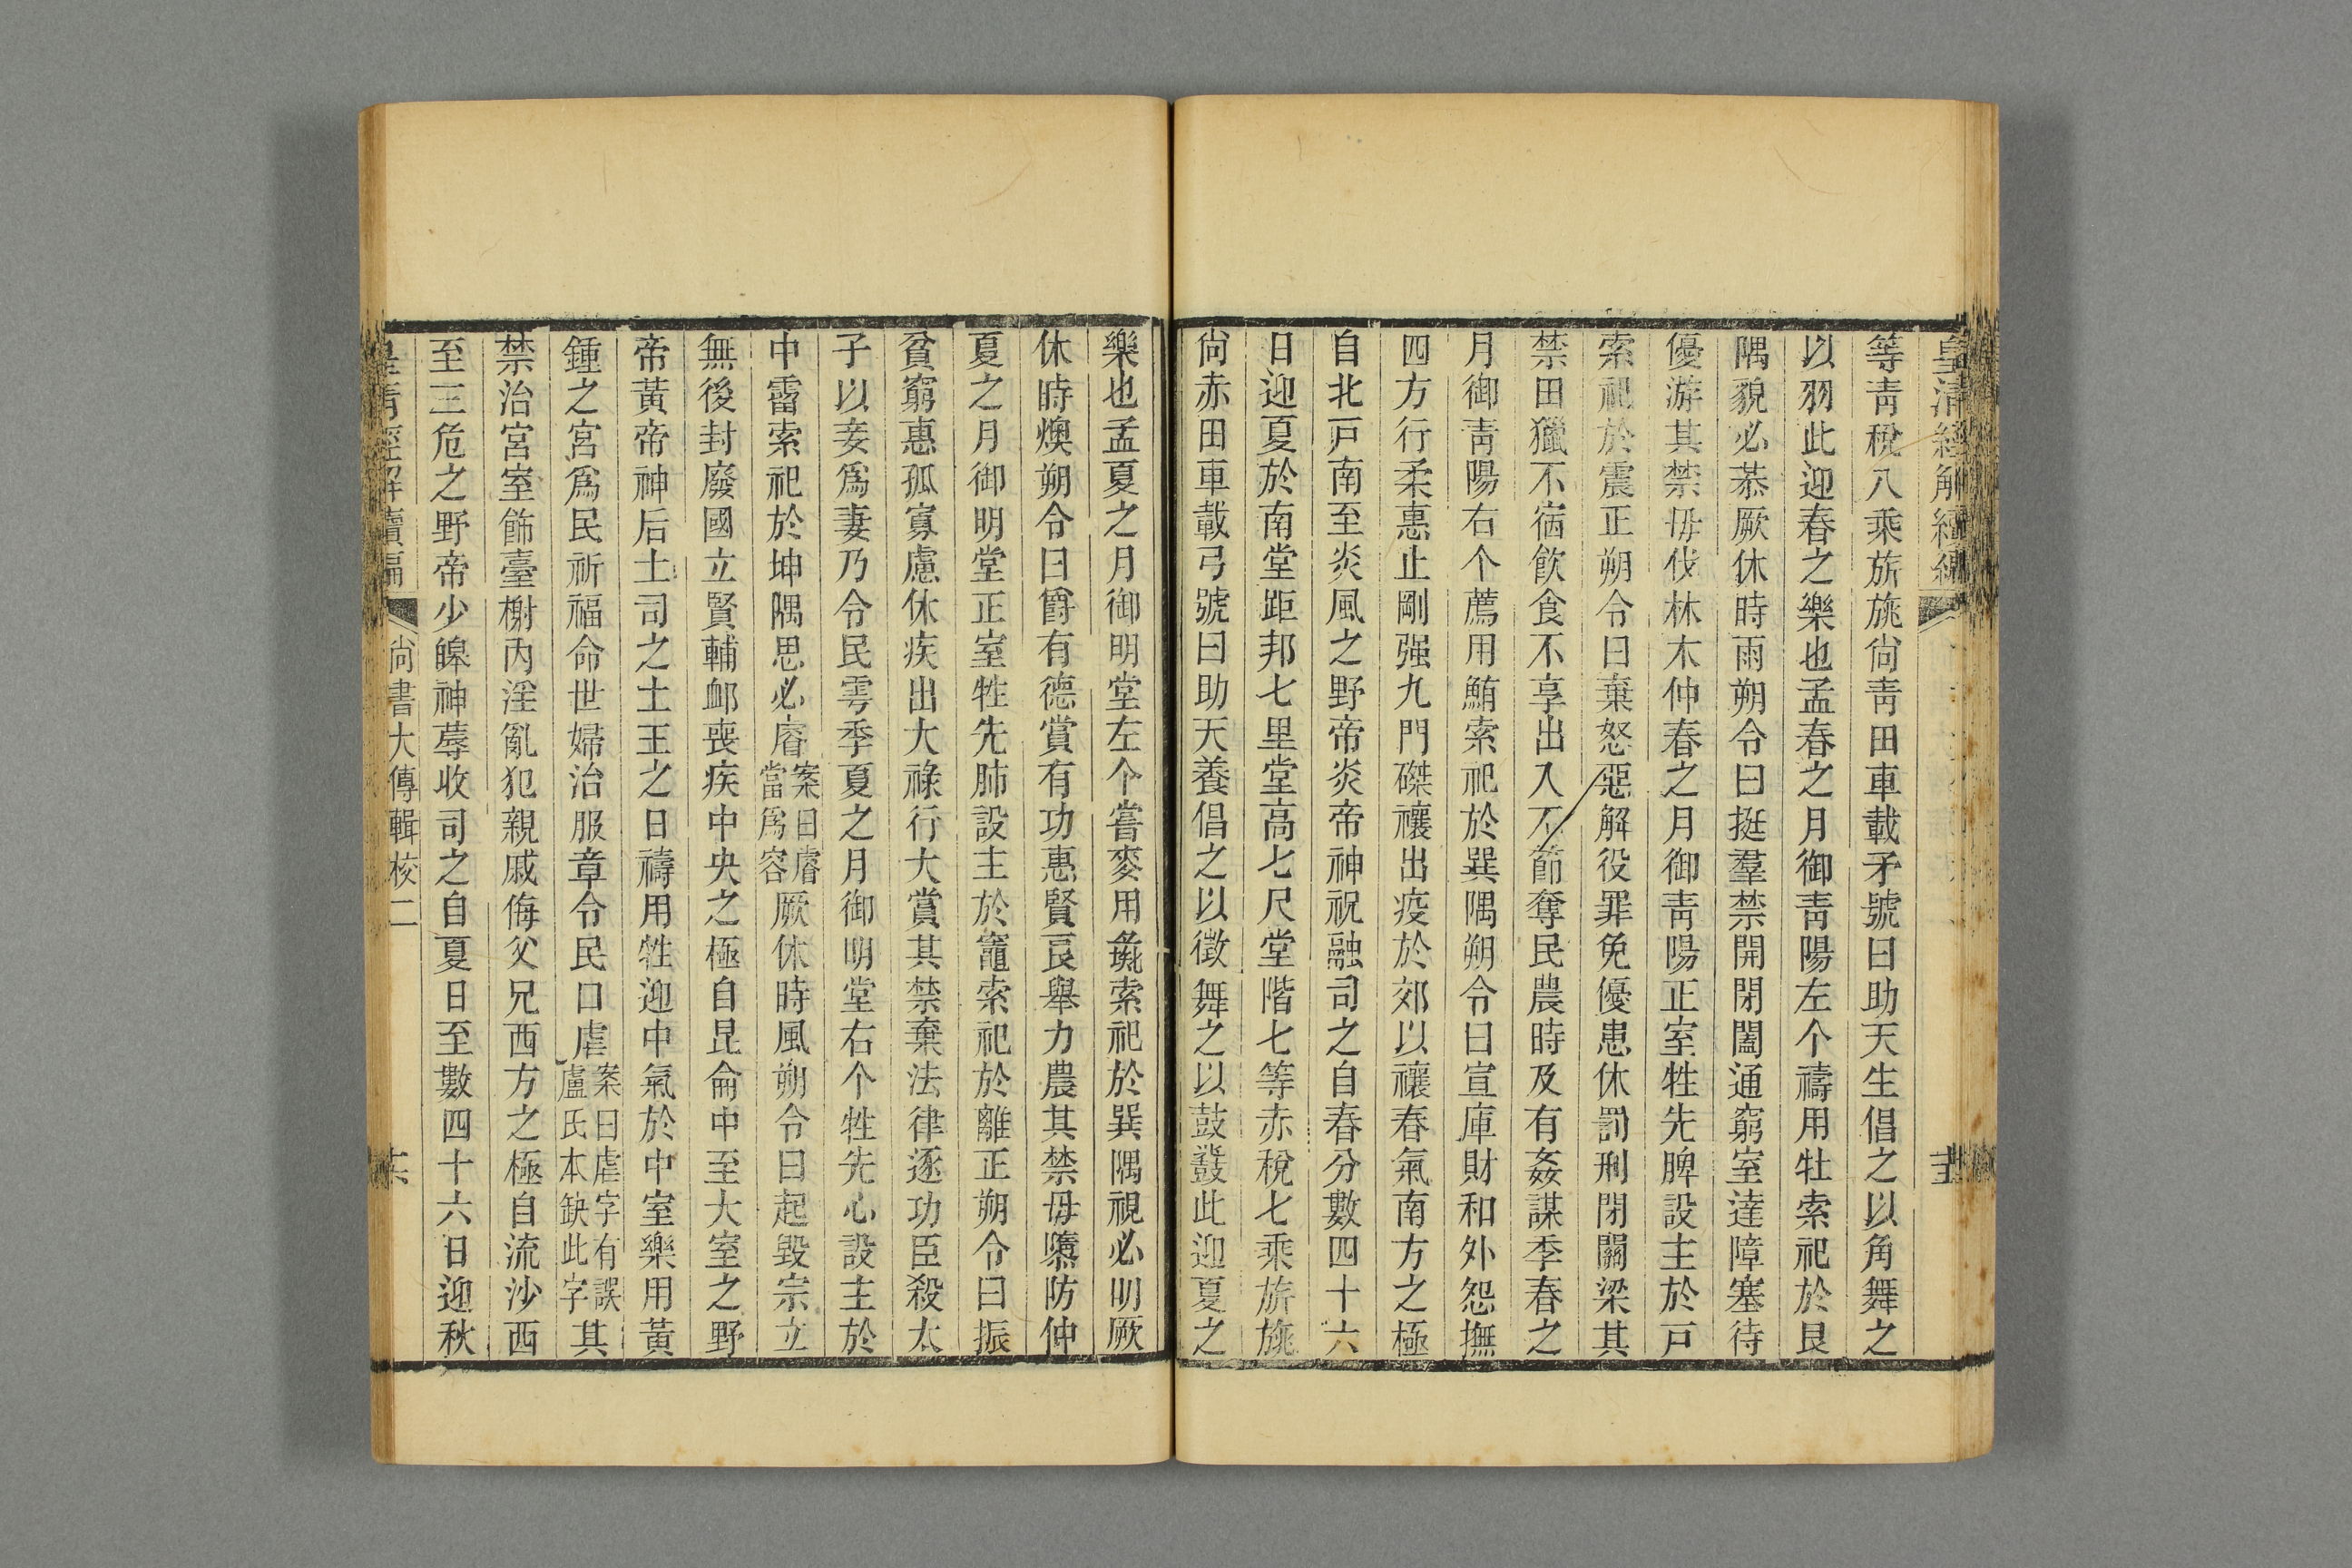 皇清經解續編
等靑稅八乘旂旄尙靑田車載矛號曰助天生倡之以角舞之
以羽此迎春之樂也孟春之月御靑陽左个禱用牡索祀於艮
隅貌必恭厥休時雨朔令曰挺羣禁開閉闔通窮窒達障塞待
優游其禁毋伐林木仲春之月御靑陽正室牲先脾設主於戸
索祀於震正朔令曰棄怒惡解役罪免優患休罰刑閉關梁其
禁田獵不宿飮食不享出入不節奪民農時及有姦謀季春之
月御靑陽右个薦用鮪索祀於巽隅朔令曰宣庫財和外怨撫
四方行柔惠止剛强九門磔禳出疫於郊以禳春氣南方之極
自北戸南至炎風之野帝炎帝神祝融司之自春分數四十六
日迎夏於南堂距邦七里堂高七尺堂階七等赤稅七乘旂旄
尙赤田車載弓號曰助天養倡之以徵舞之以鼓鼗此迎夏之
樂也孟夏之月御明堂左个嘗麥用彘索祀於巽隅視必明厥
休時燠朔令曰爵有德賞有功惠賢良舉力農其禁毋隳防仲
夏之月御明堂正室牲先肺設主於竈索祀於離正朔令曰振
貧窮惠孤寡慮休疾出大祿行大賞其禁棄法律逐功臣殺太
子以妾爲妻乃令民雩季夏之月御明堂右个牲先心設主於
中霤索祀於坤隅思必㾕案曰睿當爲容厥休時風朔令曰起毀宗立
無後封廢國立賢輔卹喪疾中央之極自昆侖中至大室之野
帝黃帝神后土司之土王之日禱用牲迎中氣於中室樂用黃
鍾之宮爲民祈福命世婦治服章令民口虐案曰虐字有誤盧氏本缺此字其
禁治宮室飾臺榭內淫亂犯親戚侮父兄西方之極自流沙西
至三危之野帝少皥神蓐收司之自夏日至數四十六日迎秋
皇淸經解續編 尙書大傳輯校二